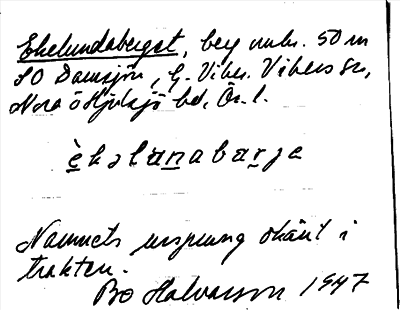 Ekelundaberget, berg omkr. 50 m
SO Damsjön, G. Viker. Vikers sn,
Nora o Hjulsjö bd, Ör. l.
èkəlanabarjə
Namnets ursprung okänt i
trakten.
Bo Halvarson 1947